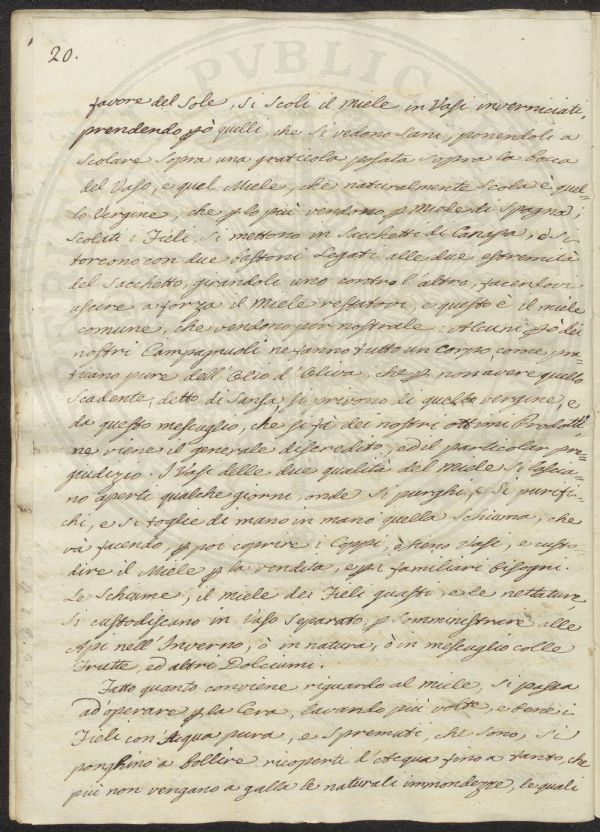 20.
favore del Sole, si scoli il Miele in Vasi inverniciati,
prendendo ꝑò quelli, che si vedono sani, ponendoli a
scolare sopra una graticola posata sopra la bocca
del Vaso, e quel Miele, che naturalmente scola è quel=
lo Vergine, che ꝑ lo più vendono ꝑ Miele di Spagna;
Scolati i Fieli, si mettono in Sacchetti di Canapa, e si
torcono con due bastoni legati alle due estremità
del Sacchetto, girandoli uno contro l'altro, facendovi
uscire a forza il Miele restatovi, e questo è il miele
comune, che vendono per nostrale. Alcuni ꝑò dei
nostri Campagnuoli ne fanno tutto un corpo, come pra=
ticano pure dell'Olio d'Oliva, che ꝑ non avere quello
scadente, detto di Sansa, si privono di quello vergine, e
da questo mescuglio, che si fà dei nostri ottimi Prodotti,
ne viene il generale discredito, ed il particolar pre=
giudizio. I Vasi delle due qualità del Miele si lascia=
no aperti qualche giorni, onde si purghi, e si purifi=
chi, e si toglie di mano in mano quella schiuma, che
và facendo, ꝑ poi coprire i Coppi, ò sieno Vasi, e custo=
dire il Miele ꝑ la vendita, e ꝑ i familiari bisogni.
Le schiume, il miele dei Fieli guasti, e le nettature
si custodiscano in Vaso separato, ꝑ somministrare alle
Api nell'Inverno, ò in natura, ò in mescuglio colle
Frutte, ed altri Dolciumi.
Fatto quanto conviene riguardo al Miele, si passa
ad operare ꝑ la Cera, lavando più volte, e bene i
Fieli con Acqua pura, e spremuti, che sono, si
ponghino a bollire ricoperti d'Acqua fino a tanto, che
più non vengano a galla le naturali immondezze, le quali
PVBLIC